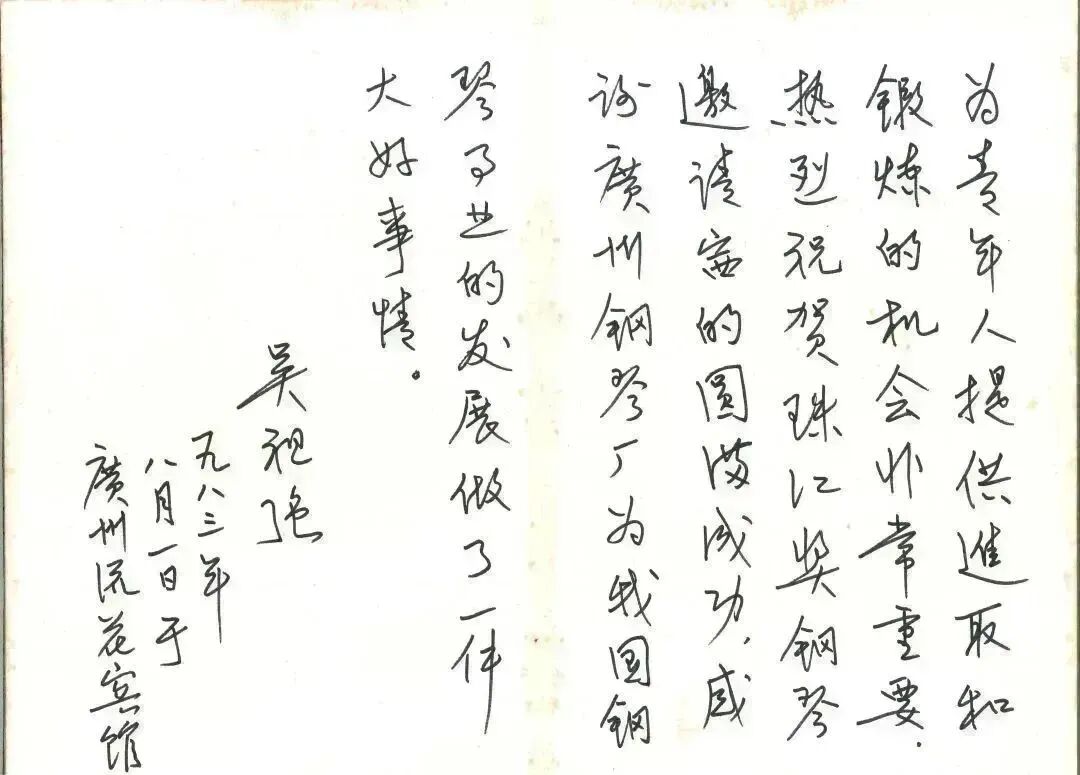 为青年人提供進取和
鍛煉的机会非常重要.
热烈祝贺珠江奖钢琴
邀请赛的圆满成功.感
谢廣州钢琴厂为我国钢
琴事业的发展做了一件
大好事情。
吴祖强
一九八三年
八月一日于
廣州流花宾馆